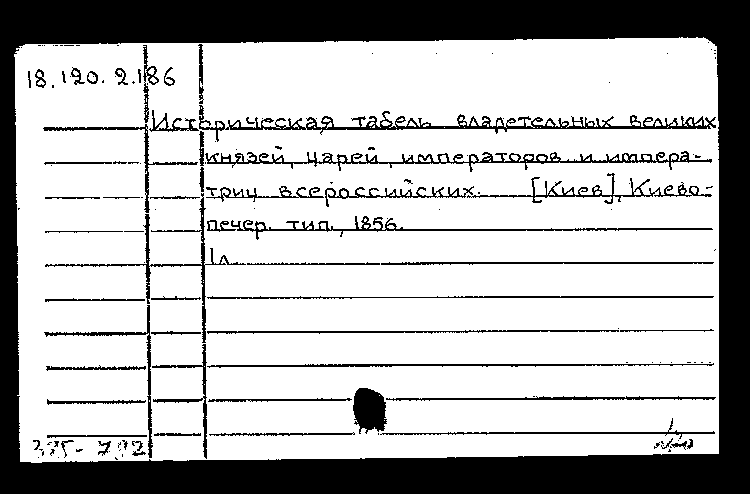 18.120.2.186
Историческая табель владетельных великих
князей, царей, императоров и импера-
триц всероссийских. [Киев], Киево-
печер. тип., 1856.
1 л.